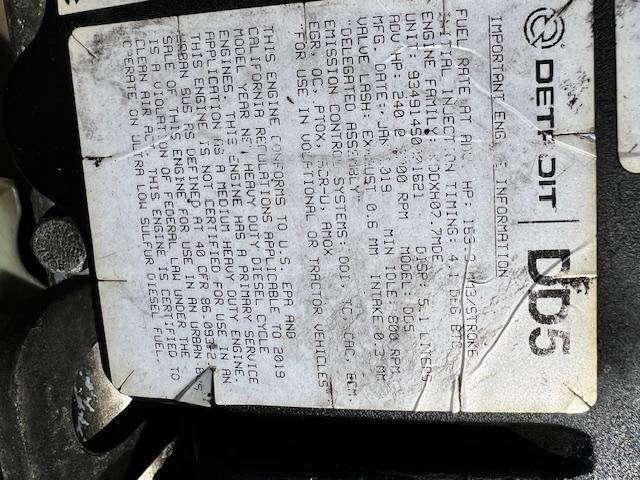 DETROIT DD5
IMPORTANT ENGINE INFORMATION
FUEL RATE AT ADV. HP: MM3/STROKE
INJECTION TIMING: 4.1 DEG BTC
ENGINE FAMILY:
UNIT: DISP: 5.1 LITERS
ADV HP: 240 @ RPM MODEL: DD5
MFG. DATE: JAN 2019 MIN IDLE: 800 RPM
VALVE LASH: EXHAUST 0.6 MM INTAKE 0.3 MM
"DELEGATED ASSEMBLY"
EMISSION CONTROL SYSTEMS: DDI, TC, CAC, ECM,
EGR, OC, PTOX, SCR/U, AMOX
"FOR USE IN VOCATIONAL OR TRACTOR VEHICLES"
THIS ENGINE CONFORMS TO U.S. EPA AND
CALIFORNIA REGULATIONS APPLICABLE TO 2019
MODEL YEAR NEW HEAVY DUTY DIESEL CYCLE
ENGINES. THIS ENGINE HAS A PRIMARY SERVICE
APPLICATION AS A MEDIUM HEAVY DUTY ENGINE.
THIS ENGINE IS NOT CERTIFIED FOR USE IN AN
URBAN BUS AS DEFINED AT 40 CFR
SALE OF THIS ENGINE FOR USE IN AN URBAN BUS
IS A VIOLATION OF FEDERAL LAW UNDER THE
CLEAN AIR ACT. THIS ENGINE IS CERTIFIED TO
OPERATE ON ULTRA LOW SULFUR DIESEL FUEL.